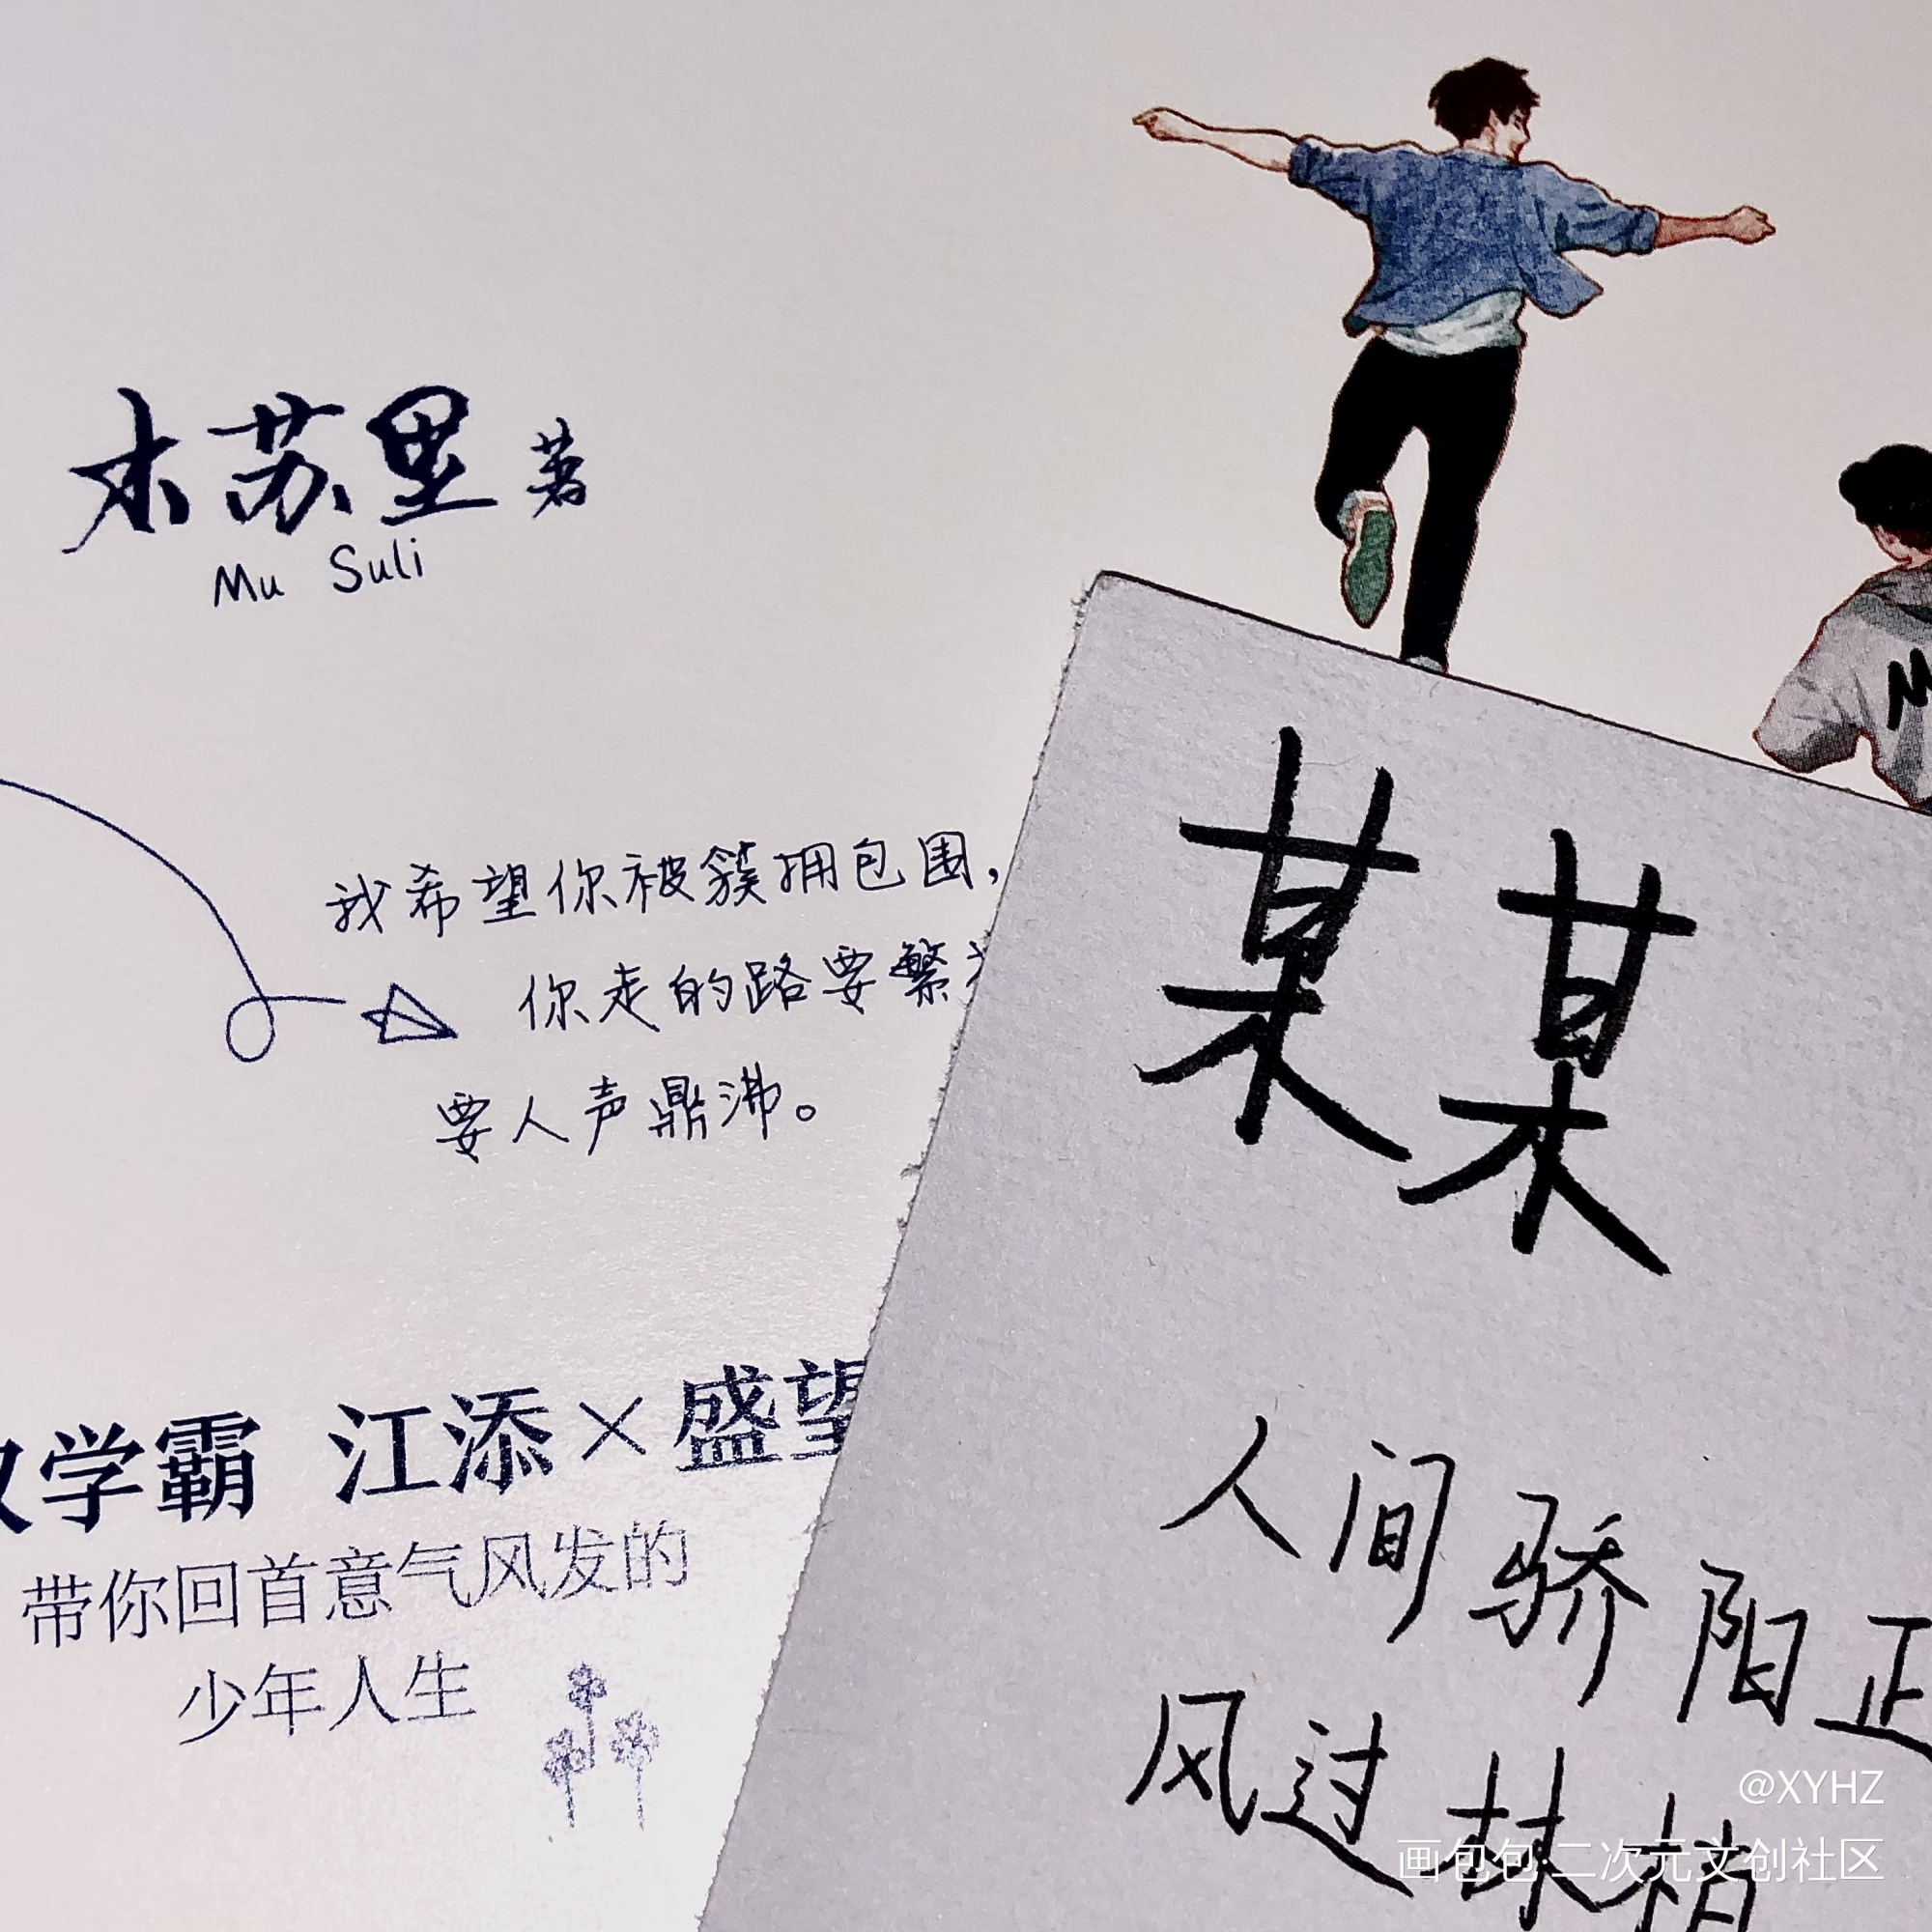 木苏里 著
Mu Suli
我希望你被簇拥包围，
你走的路要繁
要人声鼎沸。
学霸 江添×盛望
带你回首意气风发的
少年人生
某某
人间骄阳正
风过林梢
@XYHZ
画包包·二次元文创社区